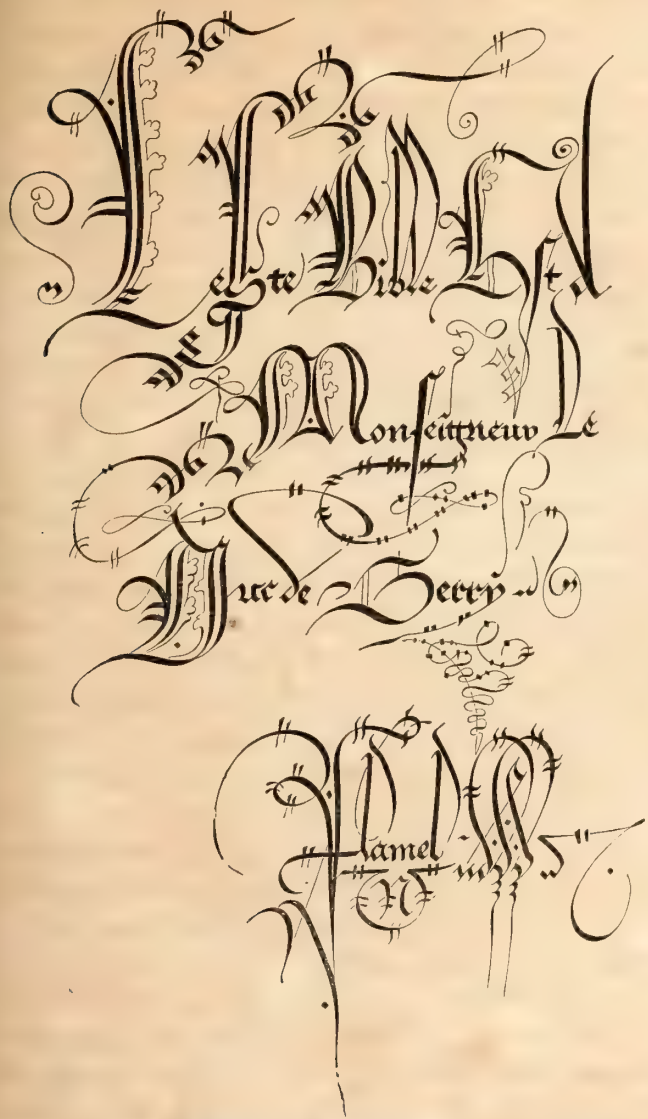 Ceste Bible Est A
Monseigneur Le
Duc de Berry
Flamel
N